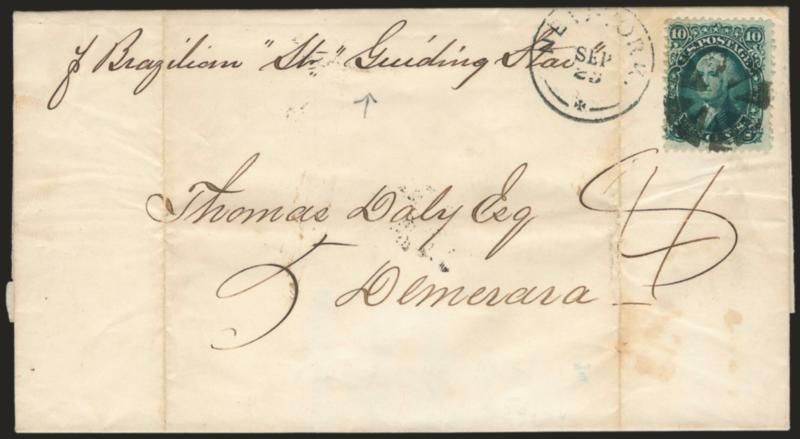 p Brazilian "Str" Guiding Star"
NEW YORK.
SEP
25
10 10
U.S. POSTAGE
Thomas Daly Esq
Demerara
4
5